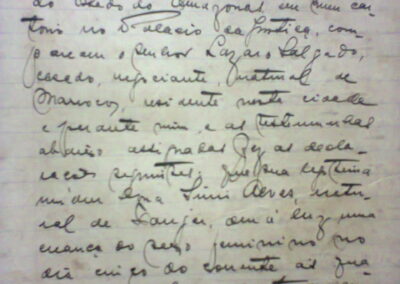 do Estado do Amazonas, em meu car-
torio no Palacio da Justiça, com-
pareceu o senhor Lazaro Salgado,
casado, negociante, natural de
Marrocos, residente nesta cidade
e perante mim e as testemunhas
abaixo assignadas fez as decla-
rações seguintes: que sua legitima
mulher Dona Simi Alves, natu-
ral de Tanger, deu á luz uma
creança do sexo feminino no
dia cinco do corrente ás qua-